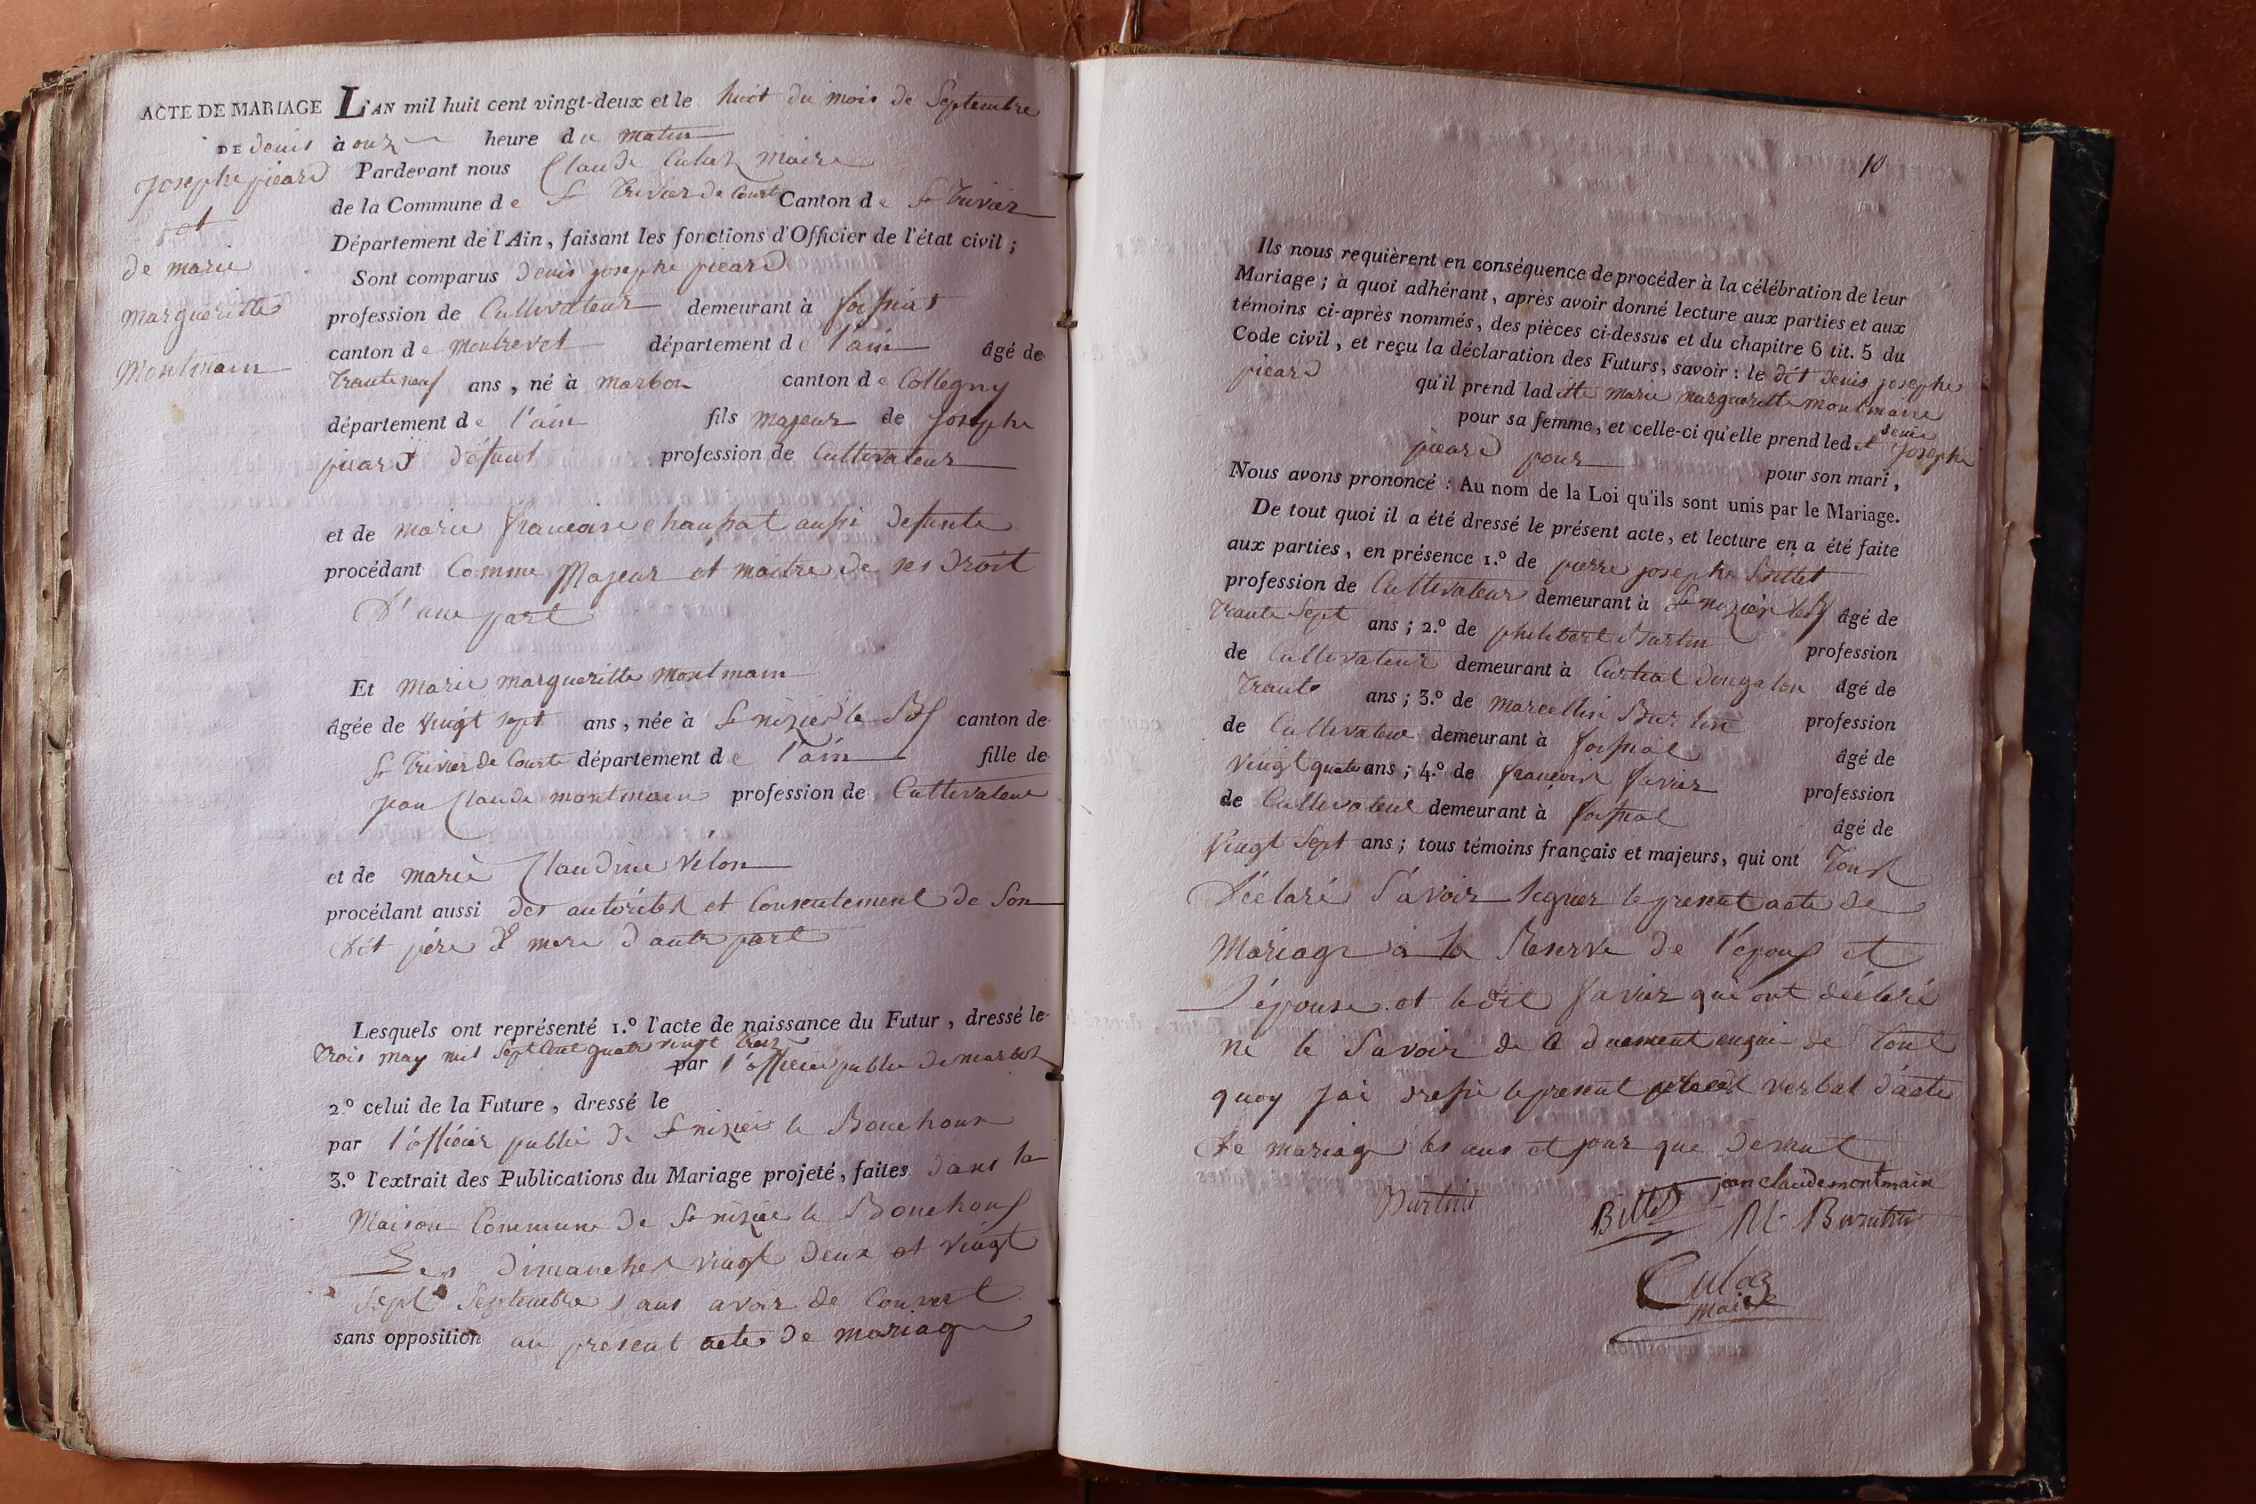 ACTE DE MARIAGE L'AN mil huit cent vingt-deux et le huit du mois de Septembre
DE denis à onz heure du matin
josephe picard Pardevant nous Claude Cula Maire
et de la Commune de St Trivier de Courte Canton de St Trivier
Département de l'Ain, faisant les fonctions d'Officier de l'état civil;
de marie Sont comparus denis josephe picard
margueritte profession de Cultivateur demeurant à foissiat
Montmain canton de Montrevel département de l'ain âgé de
Trante neuf ans, né à marbos canton de Collegny
département de l'ain fils majeur de josephe
picard défunt profession de Cultivateur
et de marie francoise chaussat aussi defunte
procédant Comme Majeur et maitre de ses droit
D'une part
Et Marie margueritte Montmain
âgée de vingt sept ans, née à St nizier le canton de
St Trivier de Courte département de l'ain fille de
jean Claude montmain profession de Cultivateur
et de marie Claudine Vélon
procédant aussi des autorités et Consentement de Son
dit père & mere d'autre part
Lesquels ont représenté 1.º l'acte de naissance du Futur, dressé le
Trois may mil Sept Cent quatre vingt trois
par l'officier public de marbos
2.º celui de la Future, dressé le
par l'officier public de St nizier le Bouchoux
3.º l'extrait des Publications du Mariage projeté, faites dans la
Maison Commune de St nizier le Bouchoux
Les dimanches vingt deux et vingt
Sept Septembre sans avoir de Couvert
sans opposition au present acte de mariage
10
Ils nous requièrent en conséquence de procéder à la célébration de leur
Mariage; à quoi adhérant, après avoir donné lecture aux parties et aux
témoins ci-après nommés, des pièces ci-dessus et du chapitre 6 tit. 5 du
Code civil, et reçu la déclaration des Futurs, savoir: le dit denis josephe
picard qu'il prend laditte marie margueritte montmain
pour sa femme, et celle-ci qu'elle prend ledit denis josephe
picard pour pour son mari,
Nous avons prononcé: Au nom de la Loi qu'ils sont unis par le Mariage.
De tout quoi il a été dressé le présent acte, et lecture en a été faite
aux parties, en présence 1.º de pierre josephe Billet
profession de Cultivateur demeurant à St nizier âgé de
Trante Sept ans; 2.º de philibert Burtin profession
de Cultivateur demeurant à Curtiat dongalon âgé de
Trante ans; 3.º de Marcellin Burtin profession
de Cultivateur demeurant à foissiat âgé de
vingt quatre ans; 4.º de françois favier profession
de Cultivateur demeurant à foissiat âgé de
vingt Sept ans; tous témoins français et majeurs, qui ont Tous
déclaré Savoir Signer le present acte de
Mariage à la Reserve de l'epoux et
L'épouse et ledit favier qui ont déclaré
ne le Savoir de ce duement enquis de tout
quoy jai dressé le present procés verbal d'acte
de mariage les ans et jour que devant
Burtin Billet jean claude montmain
M. Burtin
Cula
Maire